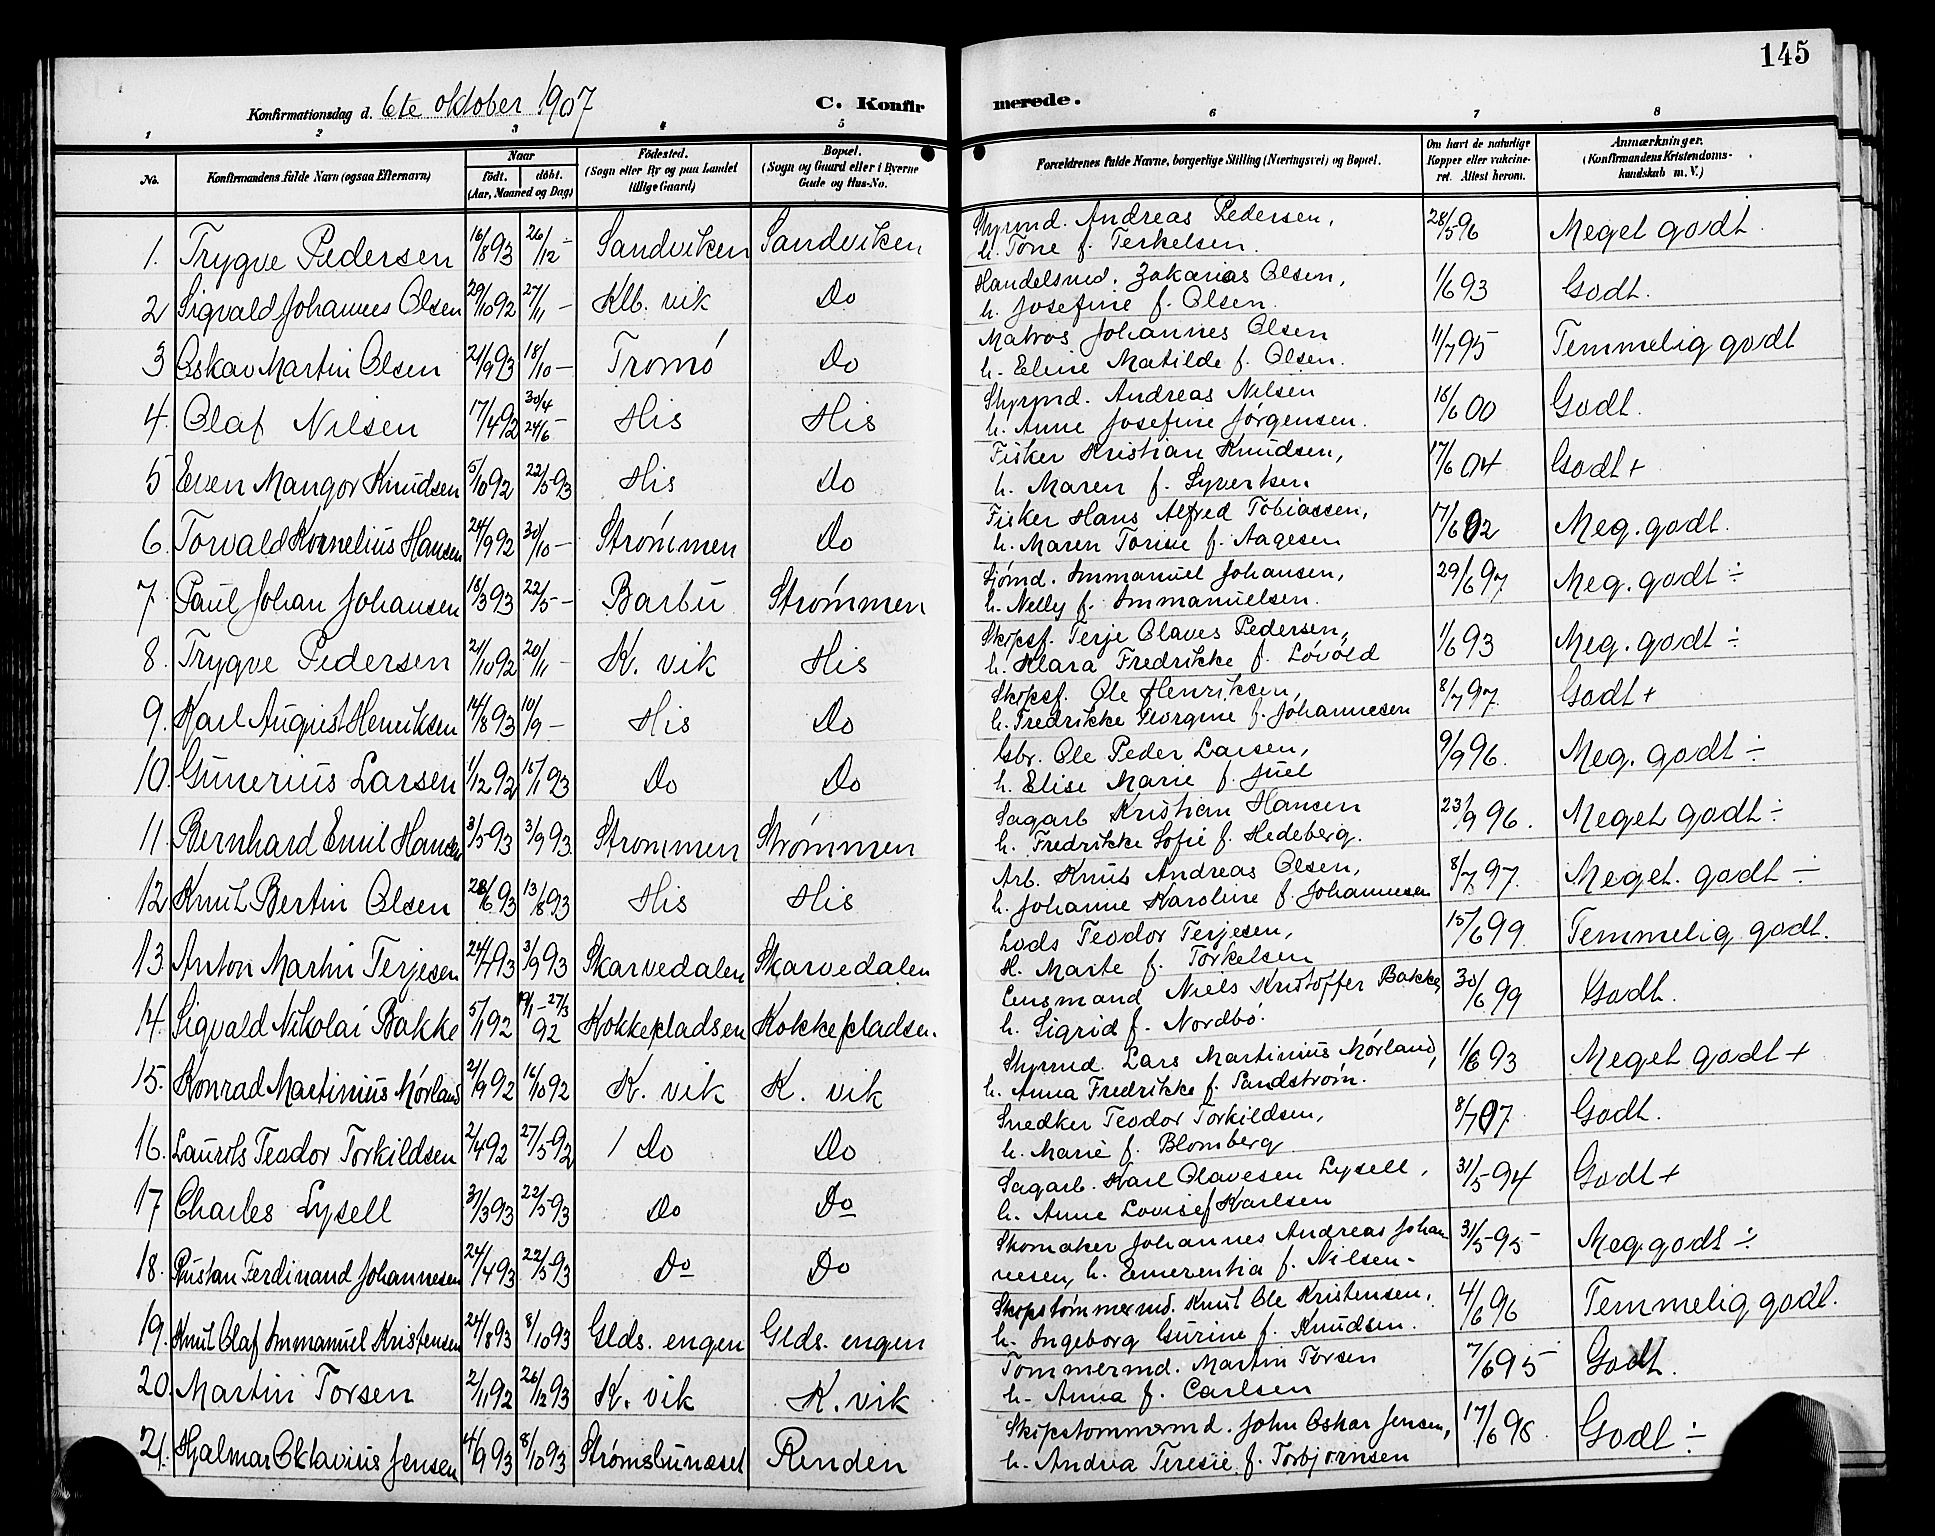 145
Konfirmationsdag d. 6te oktober 1907 C. Konfirmerede.
1 2 3 4 5 6 7 8
No. Konfirmandens fulde Navn (ogsaa Efternavn) Naar født. døbt. (Aar, Maaned og Dag) Fødested. (Sogn eller By og paa Landet tillige Gaard) Bopæl. (Sogn og Gaard eller i Byerne Gade og Hus-No. Forældrenes fulde Navne, borgerlige Stilling (Næringsvei) og Bopæl. Om havt de naturlige Kopper eller vaccineret. Attest herom. Anmærkninger. (Konfirmandens Kristendomskundskab m. V.)
1. Trygve Pedersen 16/8 93 26/12 - Sandviken Sandviken Styrmd. Andreas Pedersen, 28/5 96 Meget godt.
h. Tone f. Terkelsen.
2 Sigvald Johannes Olsen 29/10 92 27/11 - Klb. vik Do Handelsmd. Zakarias Olsen, 1/6 93 Godt.
h. Josefine f. Olsen.
3 Oskar Martin Olsen 21/9 93 18/10 - Tromö Do Matros Johannes Olsen 11/7 95 Temmelig godt
h. Eline Matilde f. Olsen.
4. Olaf Nilsen 17/4 92 30/4 24/6 - His His Styrmd. Andreas Nilsen 18/6 00 Godt.
h. Anne Josefine Jørgensen.
5 Even Mangor Knudsen 5/10 92 22/5 93 His Do Fisker Kristian Knudsen, 17/6 04 Godt +
h. Maren f. Syvertsen
6. Torvald Kornelius Hansen 24/9 92 30/10 - Strømmen Do Fisker Hans Alfred Tobiassen, 17/6 02 Meg. godt.
h. Maren Torine f. Aagesen
7. Paul Johan Johansen 18/3 93 22/5 - Barbu Strømmen Sjømd. Immanuel Johansen, 29/6 97 Meg. godt ÷
h. Nelly f. Immanuelsen.
8. Trygve Pedersen 21/10 92 20/11 - K. vik His Skipsf. Terje Olaves Pedersen, 1/6 93 Meg. godt ÷
h. Klara Fredrikke f. Lövold
9. Karl August Henriksen 14/8 93 10/9 - His Do Skipsf. Ole Henriksen, 8/7 97. Godt +
h. Fredrikke Georgine f. Johannesen
10. Gunerius Larsen 1/12 92 15/1 93 Do Do Gbr. Ole Peder Larsen, 9/9 96. Meg. godt ÷
h. Elise Marie f. Juel
11. Bernhard Emil Hansen 3/5 93 3/9 93 Strommen Strømmen Sagarb Kristian Hansen 23/9 96. Meget godt ÷
h. Fredrikke Sofie f. Hedeberg.
12 Knut Bertin Olsen 28/6 93 13/8 93 His His Arb. Knut Andreas Olsen, 8/7 97. Meget. godt ÷
h. Johanne Karoline f. Johannesen
13. Anton Martin Terjesen 24/7 93 3/9 93 Skarvedalen Skarvedalen Lods Teodor Terjesen, 15/6 99 Temmelig godt.
H. Marte f. Torkelsen
14. Sigvald Nikolai Bakke 5/1 92 19/1 - 27/3 92 Kokkepladsen Kokkepladsen. Lensmand Niels Kristoffer Bakke, 30/6 99 Godt.
h. Sigrid f. Nordbö.
15. Konrad Martinius Mørland 2/9 92 16/10 92 K. vik K. vik Styrmd. Lars Martinius Mørland, 1/6 93 Meget godt +
h. Anna Fredrikke f. Sandstrøm.
16. Laurits Teodor Torkildsen 2/4 92 27/5 92 / Do Do Snedker Teodor Torkildsen, 8/7 07. Godt.
h. Marie f. Blomberg
17 Charles Lysell 31/3 93 22/5 93 Do Do Sagarb. Karl Olavesen Lysell, 31/5 94 Godt +
h. Anne Lovise f Karlsen
18. Kristan Ferdinand Johannesen 24/4 93 22/5 93 Do Do Skomaker Johannes Andreas Johan 31/5 95 Meg. godt ÷
nesen, h. Emerentia f. Nilsen-
19. Knut Olaf Immanuel Kristensen 24/8 93 8/10 93 Glds. engen Glds. engen Skipstømmermd. Knut Ole Kristensen, 4/6 96 Temmelig godt.
h. Ingeborg Gurine f. Knudsen.
20. Martin Torsen 2/11 92 26/12 93 K. vik K. vik Tømmermd. Martin Torsen 7/6 95 Godt.
h. Anna f. Carlsen
21. Hjalmar Oktavius Jensen 4/9 93 8/10 93 Strømsbunæset Renden Skipstommermd. John Oskar Jensen, 17/6 98. Godt ÷
h. Andrea Teresie f. Torbjørnsen